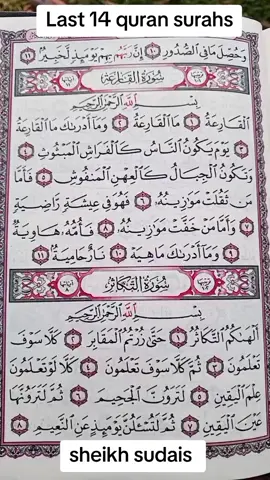 Last 14 quran surahs
وَحُصِّلَ مَا فِي ٱلصُّدُورِ ١٠ إِنَّ رَبَّهُم بِهِمْ يَوْمَئِذٍ لَّخَبِيرٌ ١١
سُورَةُ القَارِعَةِ
بِسْمِ ٱللَّهِ ٱلرَّحْمَٰنِ ٱلرَّحِيمِ
ٱلْقَارِعَةُ ١ مَا ٱلْقَارِعَةُ ٢ وَمَآ أَدْرَىٰكَ مَا ٱلْقَارِعَةُ
٣ يَوْمَ يَكُونُ ٱلنَّاسُ كَٱلْفَرَاشِ ٱلْمَبْثُوثِ ٤
وَتَكُونُ ٱلْجِبَالُ كَٱلْعِهْنِ ٱلْمَنفُوشِ ٥ فَأَمَّا
مَن ثَقُلَتْ مَوَٰزِينُهُۥ ٦ فَهُوَ فِي عِيشَةٍ رَّاضِيَةٍ
٧ وَأَمَّا مَنْ خَفَّتْ مَوَٰزِينُهُۥ ٨ فَأُمُّهُۥ هَاوِيَةٌ
٩ وَمَآ أَدْرَىٰكَ مَا هِيَهْ ١٠ نَارٌ حَامِيَةٌۢ ١١
سُورَةُ التَّكَاثُرِ
بِسْمِ ٱللَّهِ ٱلرَّحْمَٰنِ ٱلرَّحِيمِ
أَلْهَىٰكُمُ ٱلتَّكَاثُرُ ١ حَتَّىٰ زُرْتُمُ ٱلْمَقَابِرَ ٢ كَلَّا سَوْفَ
تَعْلَمُونَ ٣ ثُمَّ كَلَّا سَوْفَ تَعْلَمُونَ ٤ كَلَّا لَوْ تَعْلَمُونَ
عِلْمَ ٱلْيَقِينِ ٥ لَتَرَوُنَّ ٱلْجَحِيمَ ٦ ثُمَّ لَتَرَوُنَّهَا
عَيْنَ ٱلْيَقِينِ ٧ ثُمَّ لَتُسْـَٔلُنَّ يَوْمَئِذٍ عَنِ ٱلنَّعِيمِ ٨
sheikh sudais